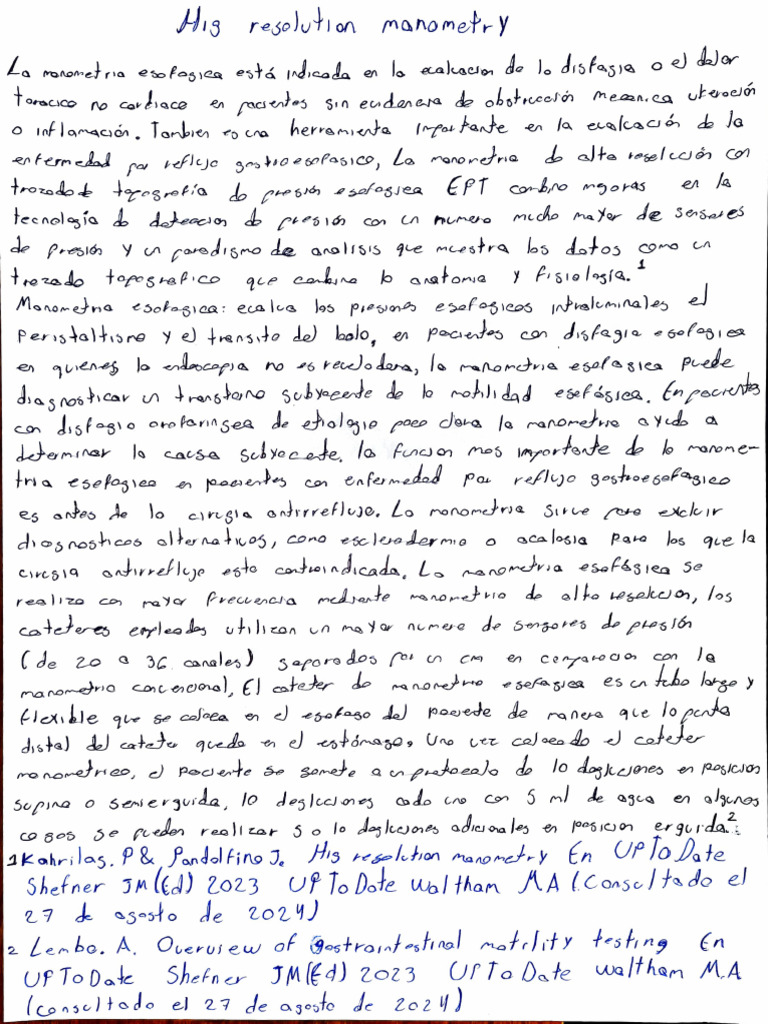 Hig resolution manometry
La manometria esofagica está indicada en la evaluacion de la disfagia o el dolor
toracico no cardiaco en pacientes sin evidencia de obstrucción mecanica ulceración
o inflamación. Tambien es una herramienta importante en la evaluación de la
enfermedad por reflujo gastroesofagico, La manometria de alta resolución con
trazado de topografía de presión esofagica EPT combina mejoras en la
tecnología de deteccion de presión con un numero mucho mayor de sensores
de presión y un paradigma de analisis que muestra los datos como un
trazado topografico que combina la anatomia y fisiología.1
Manometria esofagica: evalua las presiones esofagicas intraluminales el
peristaltismo y el transito del bolo, en pacientes con disfagia esofagica
en quienes la endoscopia no es reveladora, la manometria esofagica puede
diagnosticar un transtorno subyacente de la motilidad esofágica. En pacientes
con disfagia orofaringea de etiologia poco clara la manometria ayuda a
determinar la causa subyacente. la funcion mas importante de la manome-
tria esofagica en pacientes con enfermedad por reflujo gastroesofagico
es antes de la cirugia antirreflujo. La manometria sirve para excluir
diagnosticos alternativos, como esclerodermia o acalasia para los que la
cirugia antirreflujo esta contraindicada. La manometria esofágica se
realiza con mayor frecuencia mediante manometria de alta resolucion, los
cateteres empleados utilizan un mayor numero de sensores de presión
(de 20 a 36 canales) separados por un cm en comparacion con la
manometria convencional, El cateter de manometria esofagica es un tubo largo y
flexible que se coloca en el esofago del paciente de manera que la punta
distal del cateter quede en el estómago, Una vez colocado el cateter
manometrico, el paciente se somete a un protocolo de 10 degluciones en posicion
supina o semierguida, 10 degluciones cada una con 5 ml de agua en algunos
casos se pueden realizar 5 o 10 degluciones adicionales en posicion erguida.2
1 Kahrilas. P & Pandolfino J. Hig resolution manometry En UPToDate
Shefner JM (Ed) 2023 UPToDate Waltham MA (Consultado el
27 de agosto de 2024)
2 Lembo. A. Overview of gastrointestinal motility testing En
UPTODate Shefner JM(Ed) 2023 UPToDate waltham M.A
(consultado el 27 de agosto de 2024)